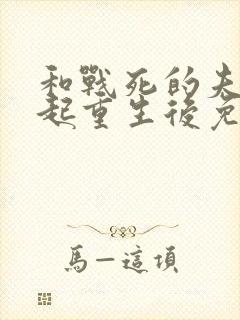 和戰死的夫
起重生後免
馬一這項